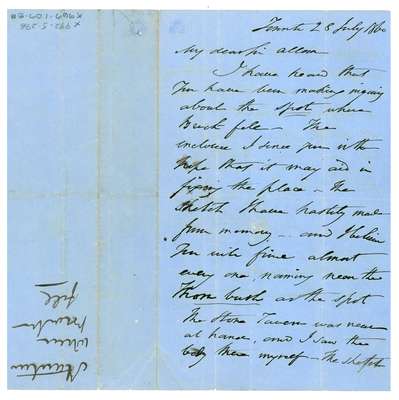 Toronto 28 July 1860
My dear Sir Allan
I have heard that
You have been making inquiry
about the spot where
Brock fell – The
inclosure I since pen in the
hope that it may aid in
fixing the place – The
Sketch I have hastily made
from memory – and I believe
You will find almost
every one naming near the
Thorn bush as the spot
The Stone Tavern was near
at hand, and I saw the
body there myself – The sketch
where
fell